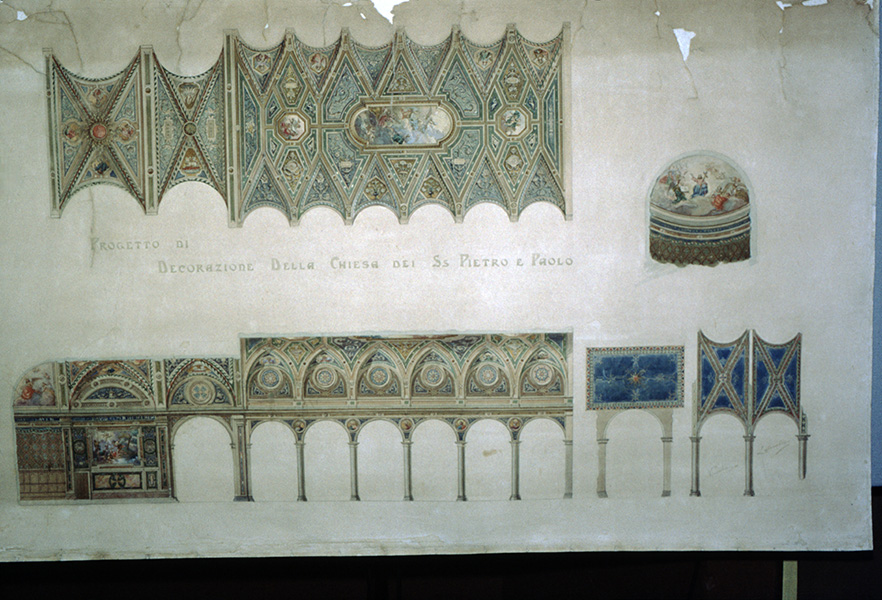 PROGETTO DI
DECORAZIONE DELLA CHIESA DEI SS PIETRO E PAOLO